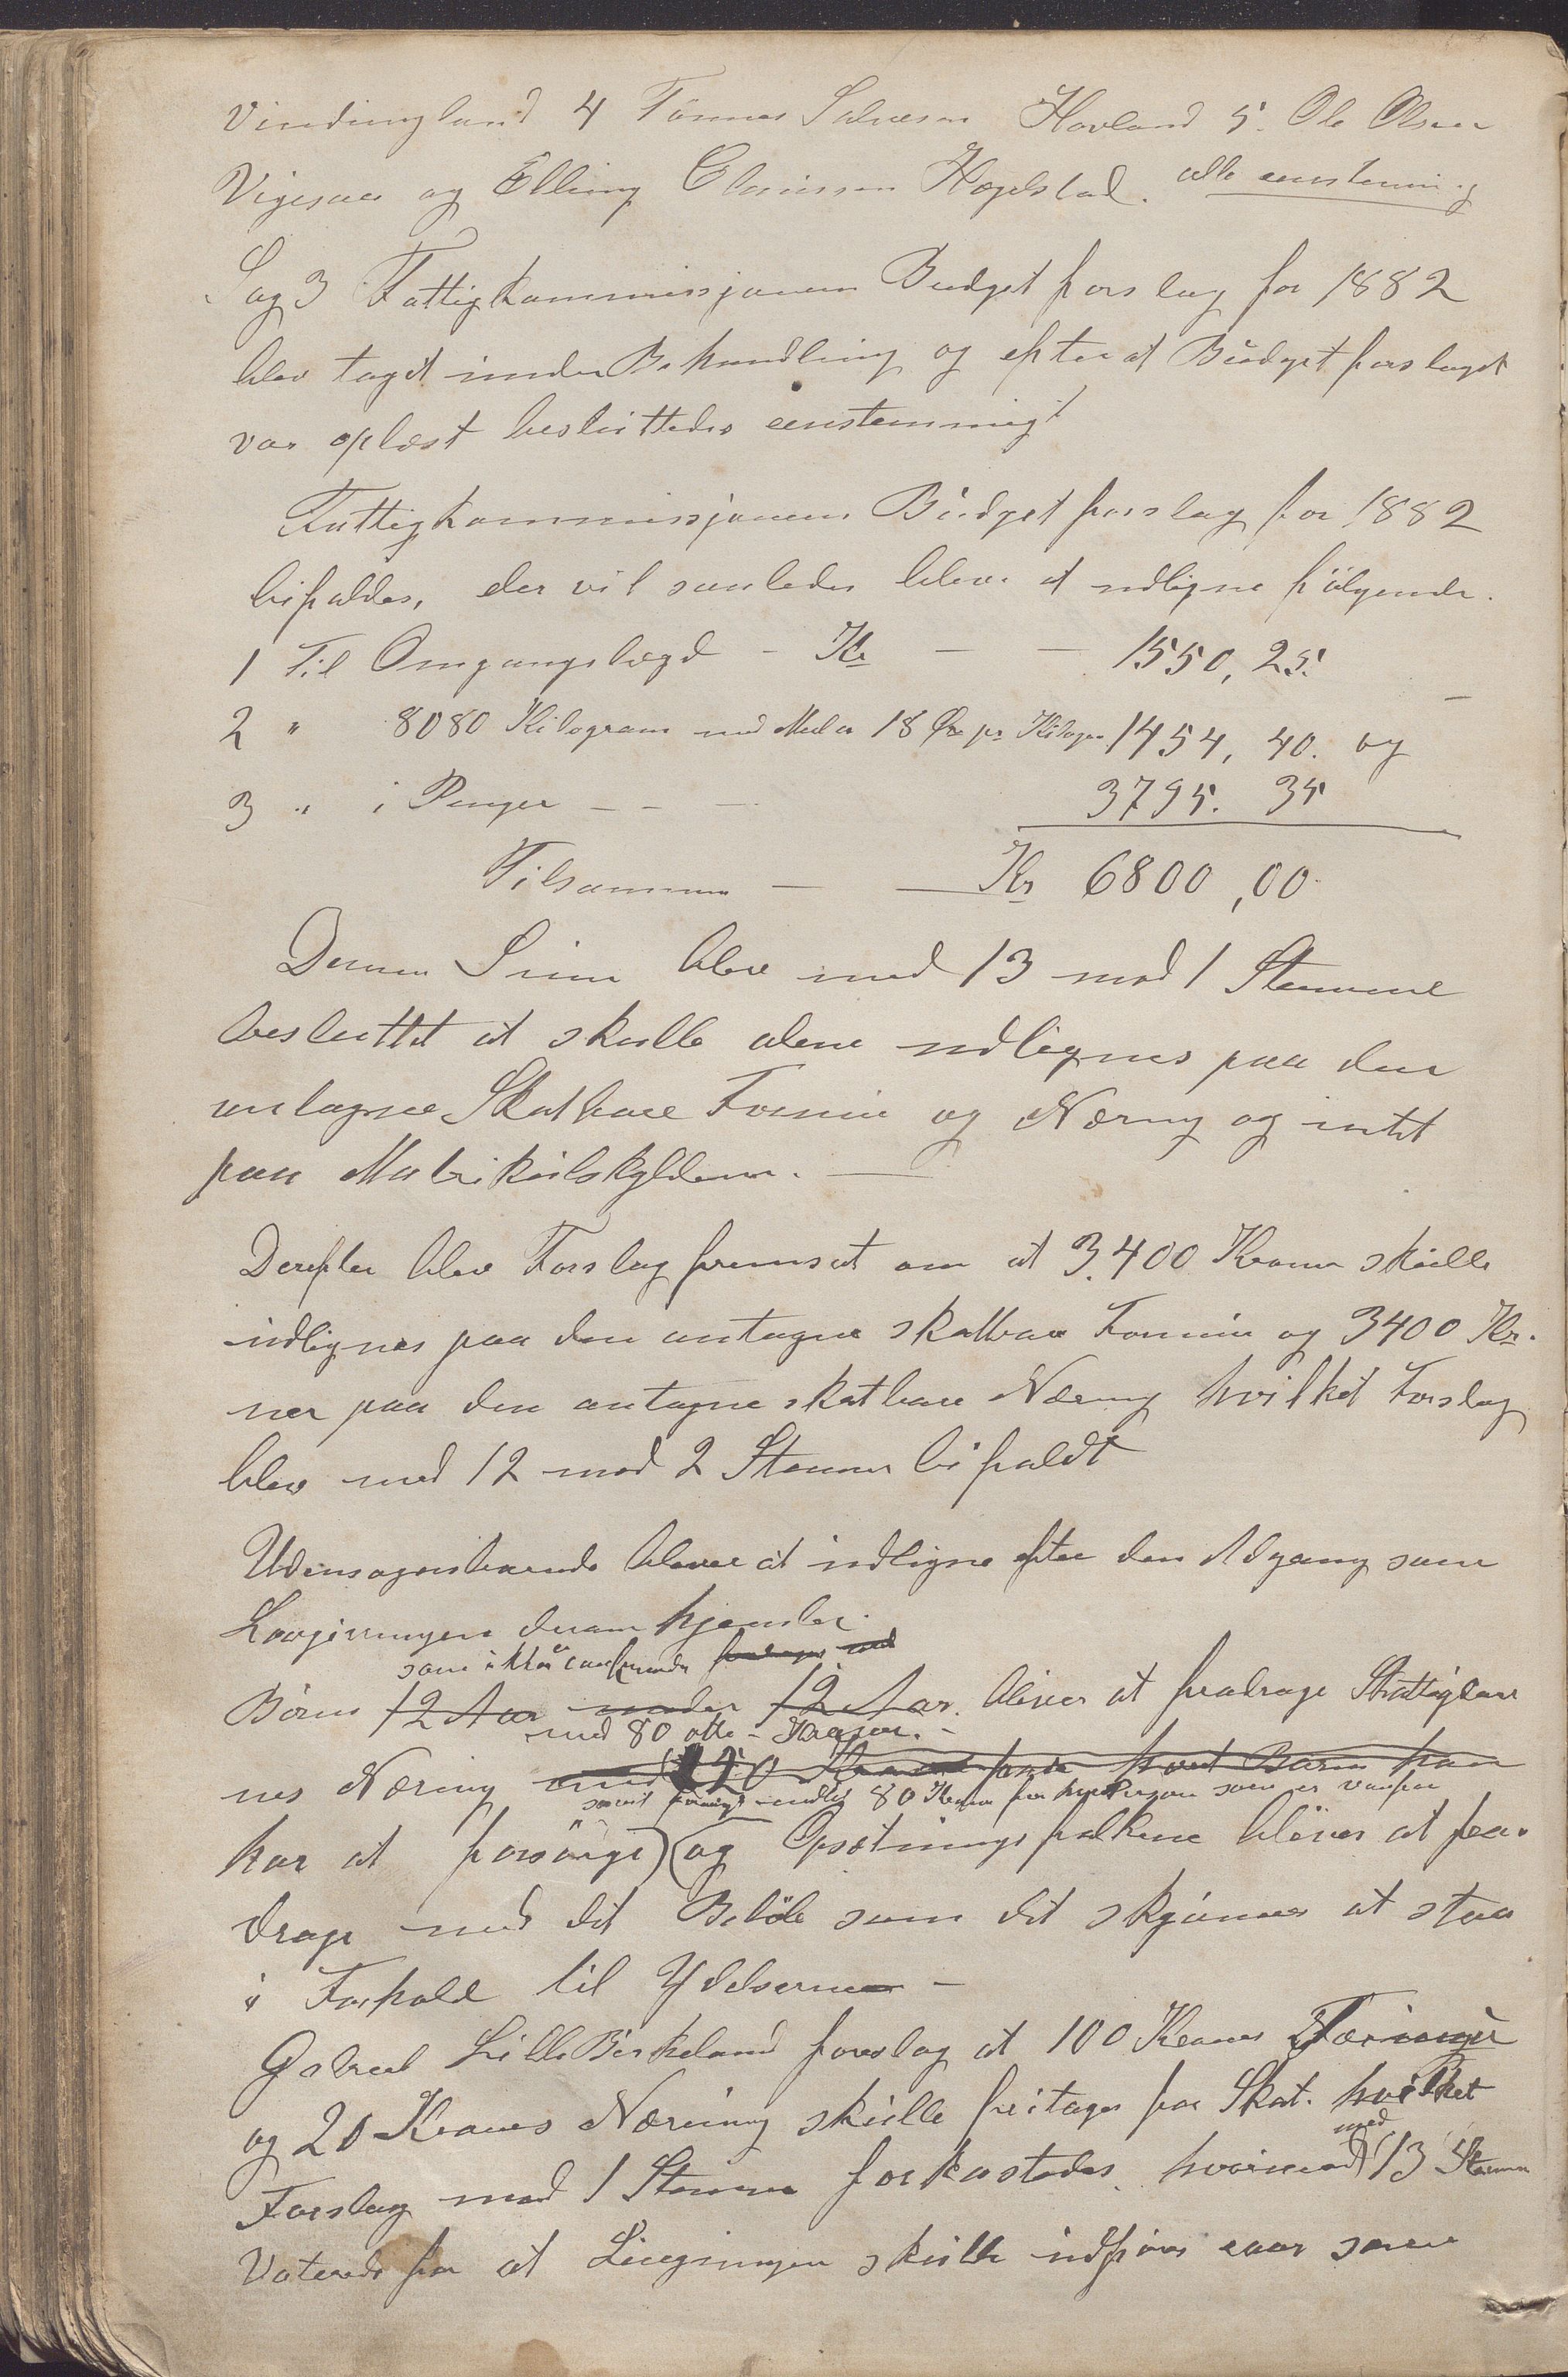 Vindingland 4 Tønnes Salvesen Hovland 5. Ole Olsen
Vigesaa og Elling Hægelstad. alle eenstemmig
Sag 3 Fattigkommissjonens Budgetforslag for 1882
blev taget under Behandling og efter at Budgetforslaget
var oplæst besluttedes eenstemmigt
Fattigkommissjonens Budgetforslag for 1882
bifaldes, der vil saaledes blive at udligne følgende.
1 Til Omgangslægd - Kr — — 1550, 25.
2 " 8080 Kilogram med Mel a 18 Øre pr Kilogr 1454, 40. og
3 " i Penger — — — 3795. 35
Tilsammen — — Kr 6800,00
Denne Sum blev med 13 mod 1 Stemme
besluttet at skulle alene udlignes paa den
antagne Skatbare Formue og Næring og intet
paa Matrikulskylden. —
Derefter blev Forslag fremsat om at 3400 Kroner skulle
udlignes paa den antagne skatbare Formue og 3400 Kr.
ner paa den antagne skatbare Næring hvilket Forslag
blev med 12 mod 2 Stemmer bifaldt
Udensognsboende bliver at udligne efter den Adgang som
Lovgivningen derom hjemler.
som ikke er confirmerede fradrages med
Børn 12 Aar under 12 Aar. bliver at fradrage Skatteyder
med 80 otte - Kroner. -
nes Næring med 120 Kroner for hvert Barn han
samt 80 Kroner for hver Person som er vanfør
har at forsørge) (og Opsætningsfolkene bliver at fra-
drage med det Beløb som det skjønnes at staa
i Forhold til Ydelserne —
Gabriel Lille Birkeland foreslog at 100 Kroner Formue
og 20 Kroners Næring skulle fritages for Skat. hvilket
Forslag mod 1 Stemme forkastedes. hvorimod med 13 Stemmer
Voterede for at Ligningen skulle udføres som